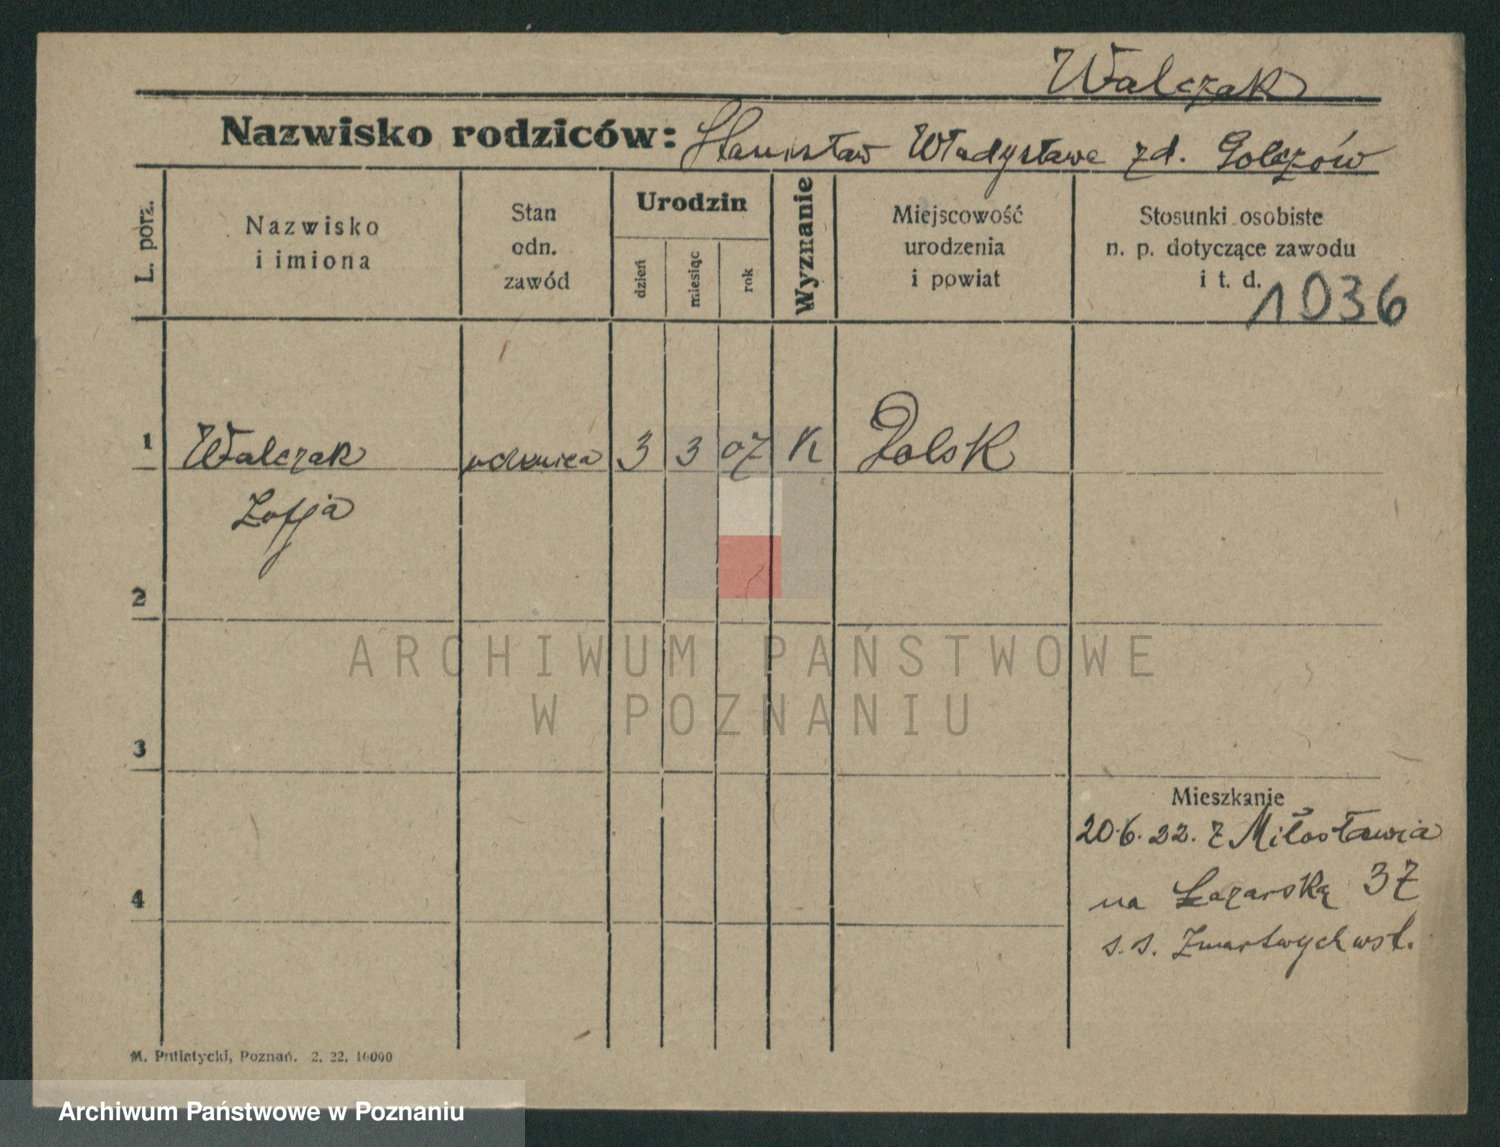 Walczak
Nazwisko rodziców: Stanisław Władysława zd. Golczów
L. porz.
Nazwisko i imiona
Stan odn. zawód
Urodzin
dzień
miesiąc
rok
Wyznanie
Miejscowość urodzenia i powiat
Stosunki osobiste n. p. dotyczące zawodu i t. d.
1036
1 Walczak uczenica 3 3 07 K Dolsk
Zofja
2
3
4
Mieszkanie
20.6.22. z Miłosławia
na Łazarską 37
s. s. Zmartwychwst.
M. Putiatycki, Poznań. 2. 22. 10000
ARCHIWUM PAŃSTWOWE
W POZNANIU
Archiwum Państwowe w Poznaniu